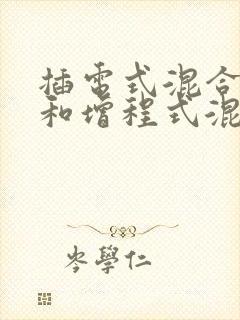 插电式混合
和增程式混
岑學仁